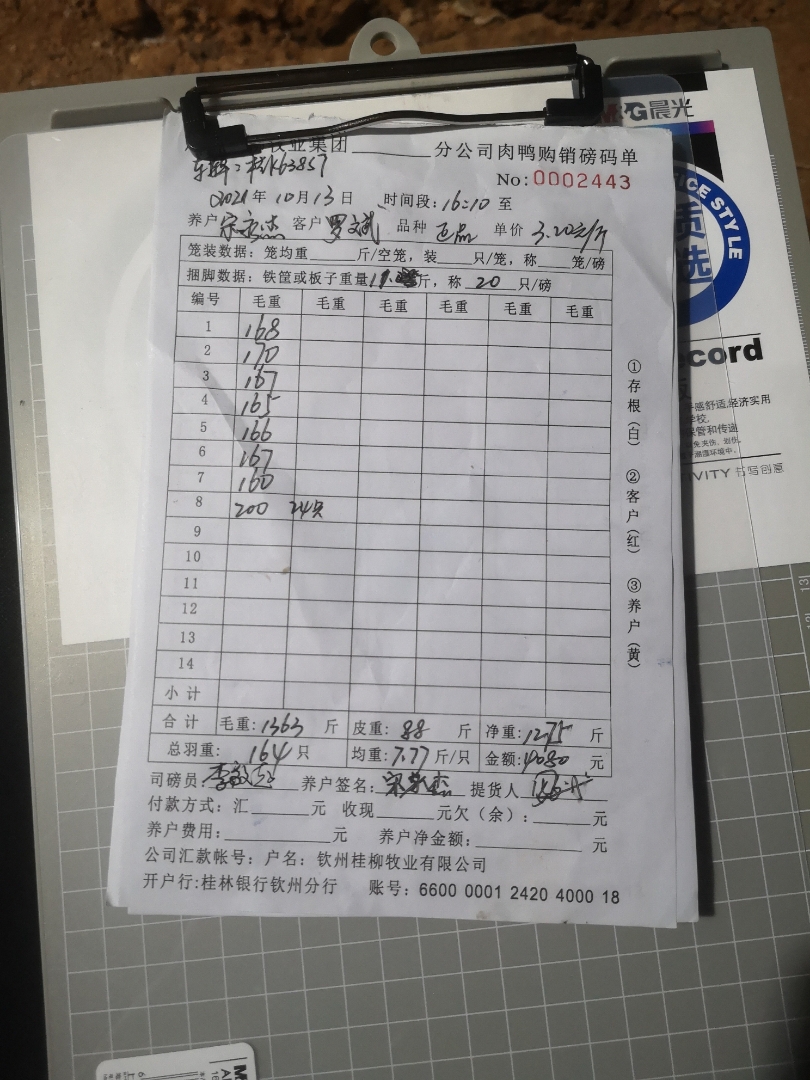 牧业集团 分公司肉鸭购销磅码单
车牌:桂K63857
No:0002443
2021年10月13日 时间段:16:10 至
养户 客户 罗文斌 品种 正品 单价 3.20元/斤
笼装数据:笼均重 斤/空笼,装 只/笼,称 笼/磅
捆脚数据:铁筐或板子重量 斤,称 20 只/磅
编号 毛重 毛重 毛重 毛重 毛重 毛重
1 168
2 170
3 167
4 165
5 166
6 167
7 160
8 200 24只
9
10
11
12
13
14
小计
合计 毛重:1363 斤 皮重:88 斤 净重:1275 斤
总羽重:164 只 均重:7.77斤/只 金额:4080 元
司磅员: 养户签名: 提货人
付款方式:汇 元 收现 元欠(余): 元
养户费用: 元 养户净金额: 元
公司汇款帐号:户名:钦州桂柳牧业有限公司
开户行:桂林银行钦州分行 账号:6600 0001 2420 4000 18
①存根(白) ②客户(红) ③养户(黄)
M&G晨光
ICE STYLE
cord
感舒适,经济实用
学校,
保管和传递
VITY 书写创意